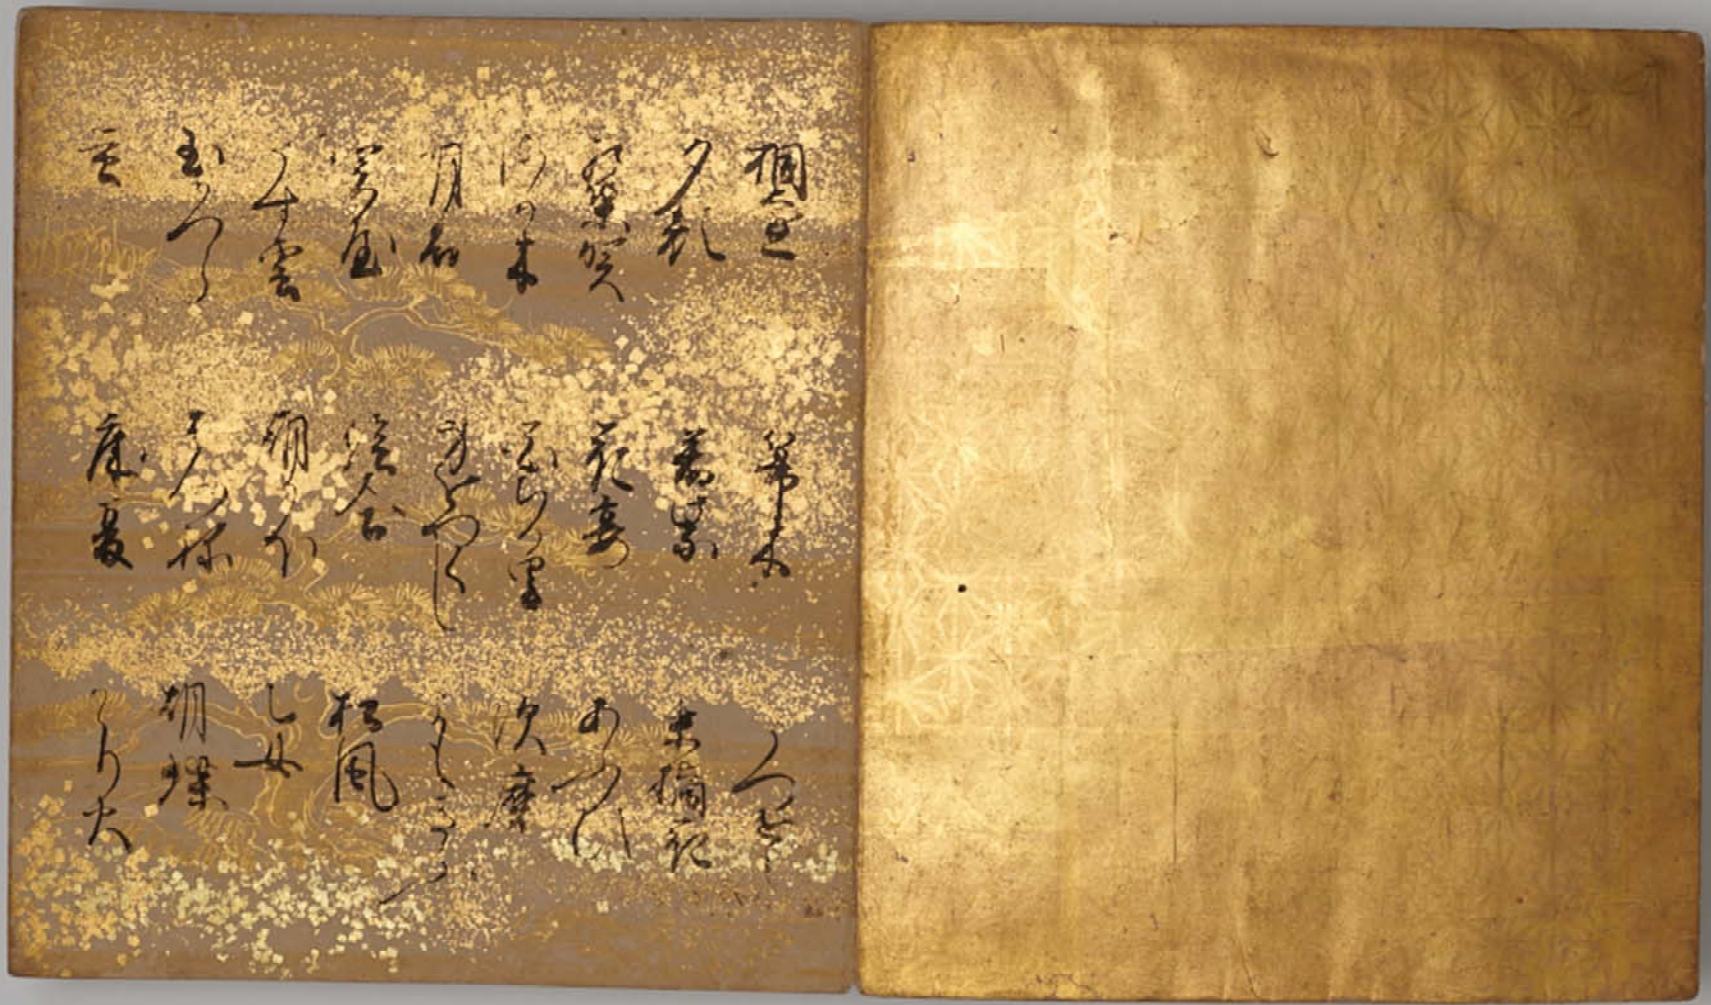 桐壺 箒木 うつせみ
夕顔 若紫 末摘花
紅葉賀 花宴 あふひ
さか木 花ちる里 須磨
明石 身をつくし よもきふ
関屋 絵合 松風
うす雲 朝かほ 乙女
玉かつら はつね 胡蝶
蛍 床夏 かゝり火